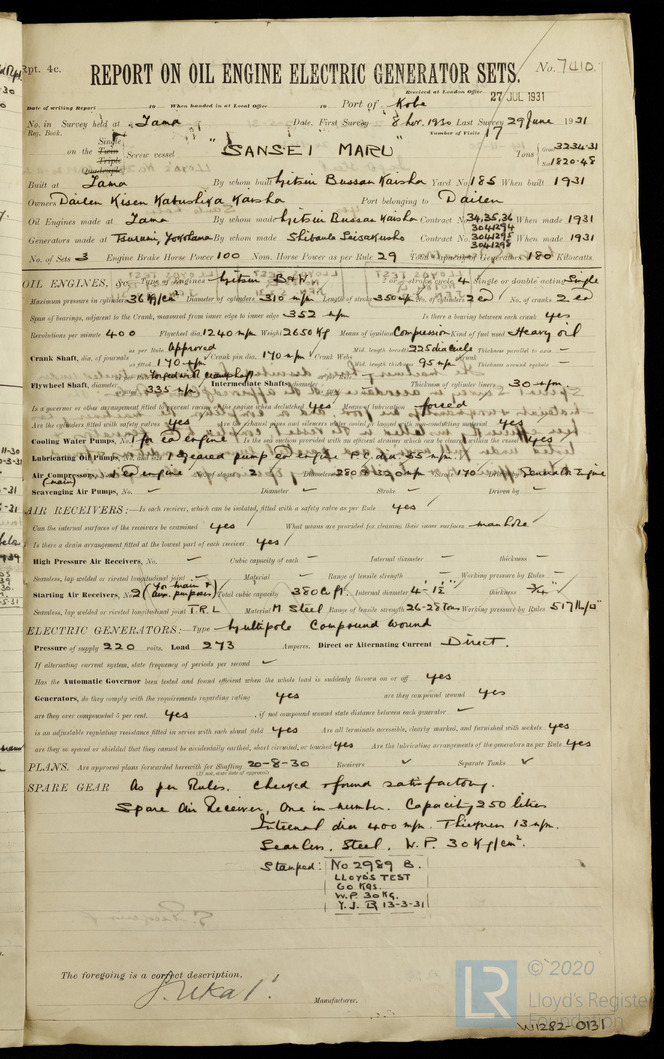 Rpt. 4c.
REPORT ON OIL ENGINE ELECTRIC GENERATOR SETS.
No. 7410.
Received at London Office 27 JUL 1931
Date of writing Report 19 When handed in at Local Office 19 Port of Kobe
No. in Survey held at Tama Date, First Survey 8 Nov. 1930 Last Survey 29 June 1931
Reg. Book. Number of Visits 17
on the Single Twin Triple Quadruple Screw vessel "SANSEI MARU" Tons Gross 3234.31 Net 1820.48
Built at Tama By whom built Mitsui Bussan Kaisha Yard No. 185 When built 1931
Owners Dairen Kisen Kabushika Kaisha Port belonging to Dairen
Oil Engines made at Tama By whom made Mitsui Bussan Kaisha Contract No. 34,35,36 When made 1931
Generators made at Tsurumi, Yokohama By whom made Shibaura Seisakusho Contract No. 3041294 3041295 3041298 When made 1931
No. of Sets 3 Engine Brake Horse Power 100 Nom. Horse Power as per Rule 29 Total Capacity of Generators 180 Kilowatts.
OIL ENGINES, &c. Type of Engines Mitsui B & W 2 or 4 stroke cycle 4 Single or double acting Single
Maximum pressure in cylinders 36 Kg/cm² Diameter of cylinders 310 m/m Length of stroke 350 m/m No. of cylinders 2 ea No. of cranks 2 ea
Span of bearings, adjacent to the Crank, measured from inner edge to inner edge 352 m/m Is there a bearing between each crank yes
Revolutions per minute 400 Flywheel dia. 1240 m/m Weight 2650 Kg Means of ignition Compression Kind of fuel used Heavy oil
Crank Shaft, dia. of journals as per Rule Approved as fitted 170 m/m Crank pin dia. 170 m/m Crank Webs Mid. length breadth 225 dia circle Mid. length thickness 95 m/m Thickness parallel to axis – Thickness around eyehole –
Flywheel Shaft, diameter 335 m/m Intermediate Shafts, diameter Thickness of cylinder liners 30 m/m
Is a governor or other arrangement fitted to prevent racing of the engine when declutched yes Means of lubrication forced
Are the cylinders fitted with safety valves yes Are the exhaust pipes and silencers water cooled or lagged with non-conducting material yes
Cooling Water Pumps, No. 1 for ea engine Is the sea suction provided with an efficient strainer which can be cleared within the vessel yes
Lubricating Oil Pumps, No. and size 1 geared pump ea engine P.C. dia 55 m/m
Air Compressors, No. 1 ea engine No. of stages 2 Diameters 280 & 320 m/m Stroke 170 Driven by Generator Engine
Scavenging Air Pumps, No. – Diameter – Stroke – Driven by –
AIR RECEIVERS:—Is each receiver, which can be isolated, fitted with a safety valve as per Rule yes
Can the internal surfaces of the receivers be examined yes What means are provided for cleaning their inner surfaces manhole
Is there a drain arrangement fitted at the lowest part of each receiver yes
High Pressure Air Receivers, No. – Cubic capacity of each – Internal diameter – thickness –
Seamless, lap welded or riveted longitudinal joint – Material – Range of tensile strength Working pressure by Rules –
Starting Air Receivers, No. 2 (for main & aux. purposes) Total cubic capacity 380 C. ft. Internal diameter 4'-1½" thickness ¾"
Seamless, lap welded or riveted longitudinal joint T.R.L Material M Steel Range of tensile strength 26-28 Tons Working pressure by Rules 517 lb/□"
ELECTRIC GENERATORS:—Type Multipole Compound wound
Pressure of supply 220 volts. Load 273 Amperes. Direct or Alternating Current Direct.
If alternating current system, state frequency of periods per second
Has the Automatic Governor been tested and found efficient when the whole load is suddenly thrown on or off yes
Generators, do they comply with the requirements regarding rating yes are they compound wound yes
are they over compounded 5 per cent. yes , if not compound wound state distance between each generator
is an adjustable regulating resistance fitted in series with each shunt field yes Are all terminals accessible, clearly marked, and furnished with sockets yes
are they so spaced or shielded that they cannot be accidentally earthed, short circuited, or touched yes Are the lubricating arrangements of the generators as per Rule yes
PLANS. Are approved plans forwarded herewith for Shafting 20-8-30 Receivers ✓ Separate Tanks ✓
(If not, state date of approval)
SPARE GEAR As per Rules. Checked & found satisfactory.
Spare Air Receiver, One in number. Capacity 250 litres
Internal dia 400 m/m. Thickness 13 m/m.
Seamless. Steel. W.P. 30 Kg/cm².
Stamped: No 2989 B.
LLOYD'S TEST
60 KGS.
W.P. 30 KG.
Y.J. 13-3-31
The foregoing is a correct description,
Manufacturer.
LR © 2020
Lloyd's Register
Foundation
W1282-0131